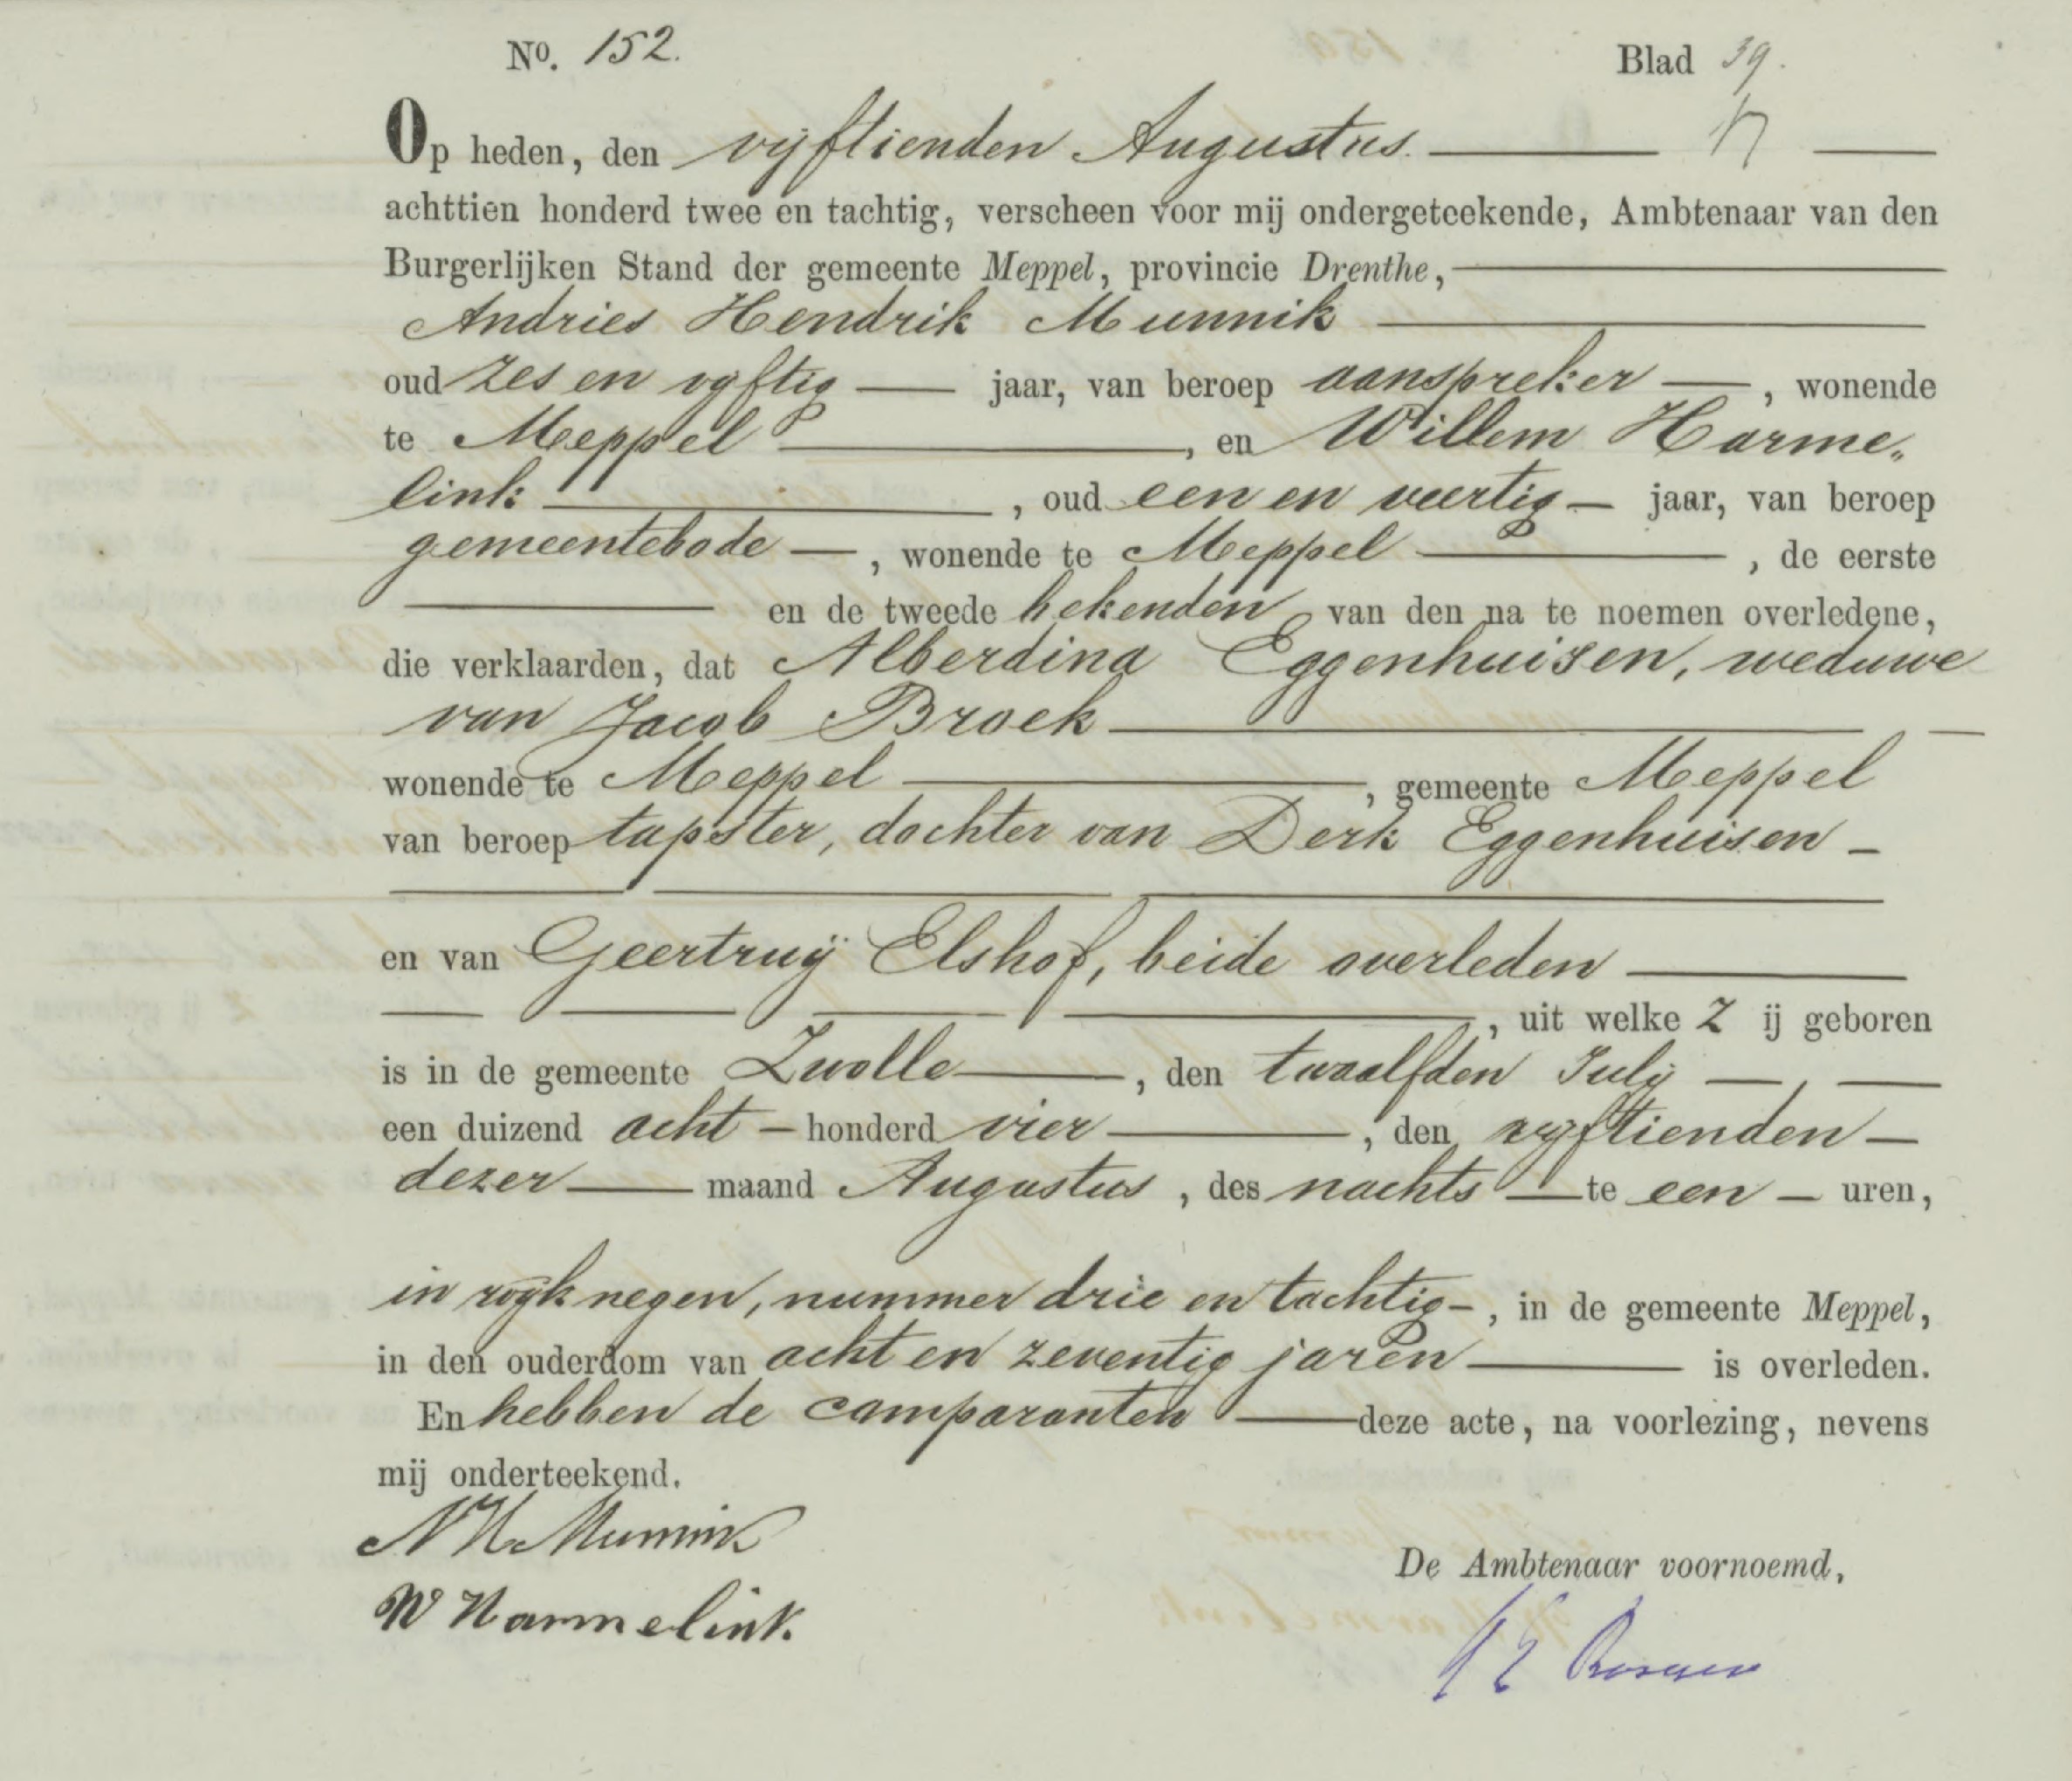 No. 152.
Blad 39.
Op heden, den vijftienden Augustus
achttien honderd twee en tachtig, verscheen voor mij ondergeteekende, Ambtenaar van den
Burgerlijken Stand der gemeente Meppel, provincie Drenthe,
Andries Hendrik Munnik
oud zes en vyftig jaar, van beroep aanspreker, wonende
te Meppel, en Willem Harme„
link, oud een en veertig jaar, van beroep
gemeentebode, wonende te Meppel, de eerste
en de tweede bekenden van den na te noemen overledene,
die verklaarden, dat Alberdina Eggenhuisen, weduwe
van Jacob Broek
wonende te Meppel, gemeente Meppel
van beroep tapster, dochter van Derk Eggenhuisen
en van Geertruij Elshof, beide overleden
, uit welke Z ij geboren
is in de gemeente Zwolle, den twaalfden July,
een duizend acht honderd vier, den vyftienden
dezer maand Augustus, des nachts te een uren,
in wijk negen, nummer drie en tachtig, in de gemeente Meppel,
in den ouderdom van acht en zeventig jaren is overleden.
En hebben de comparanten deze acte, na voorlezing, nevens
mij onderteekend.
A H Munnik
W Harmelink.
De Ambtenaar voornoemd,